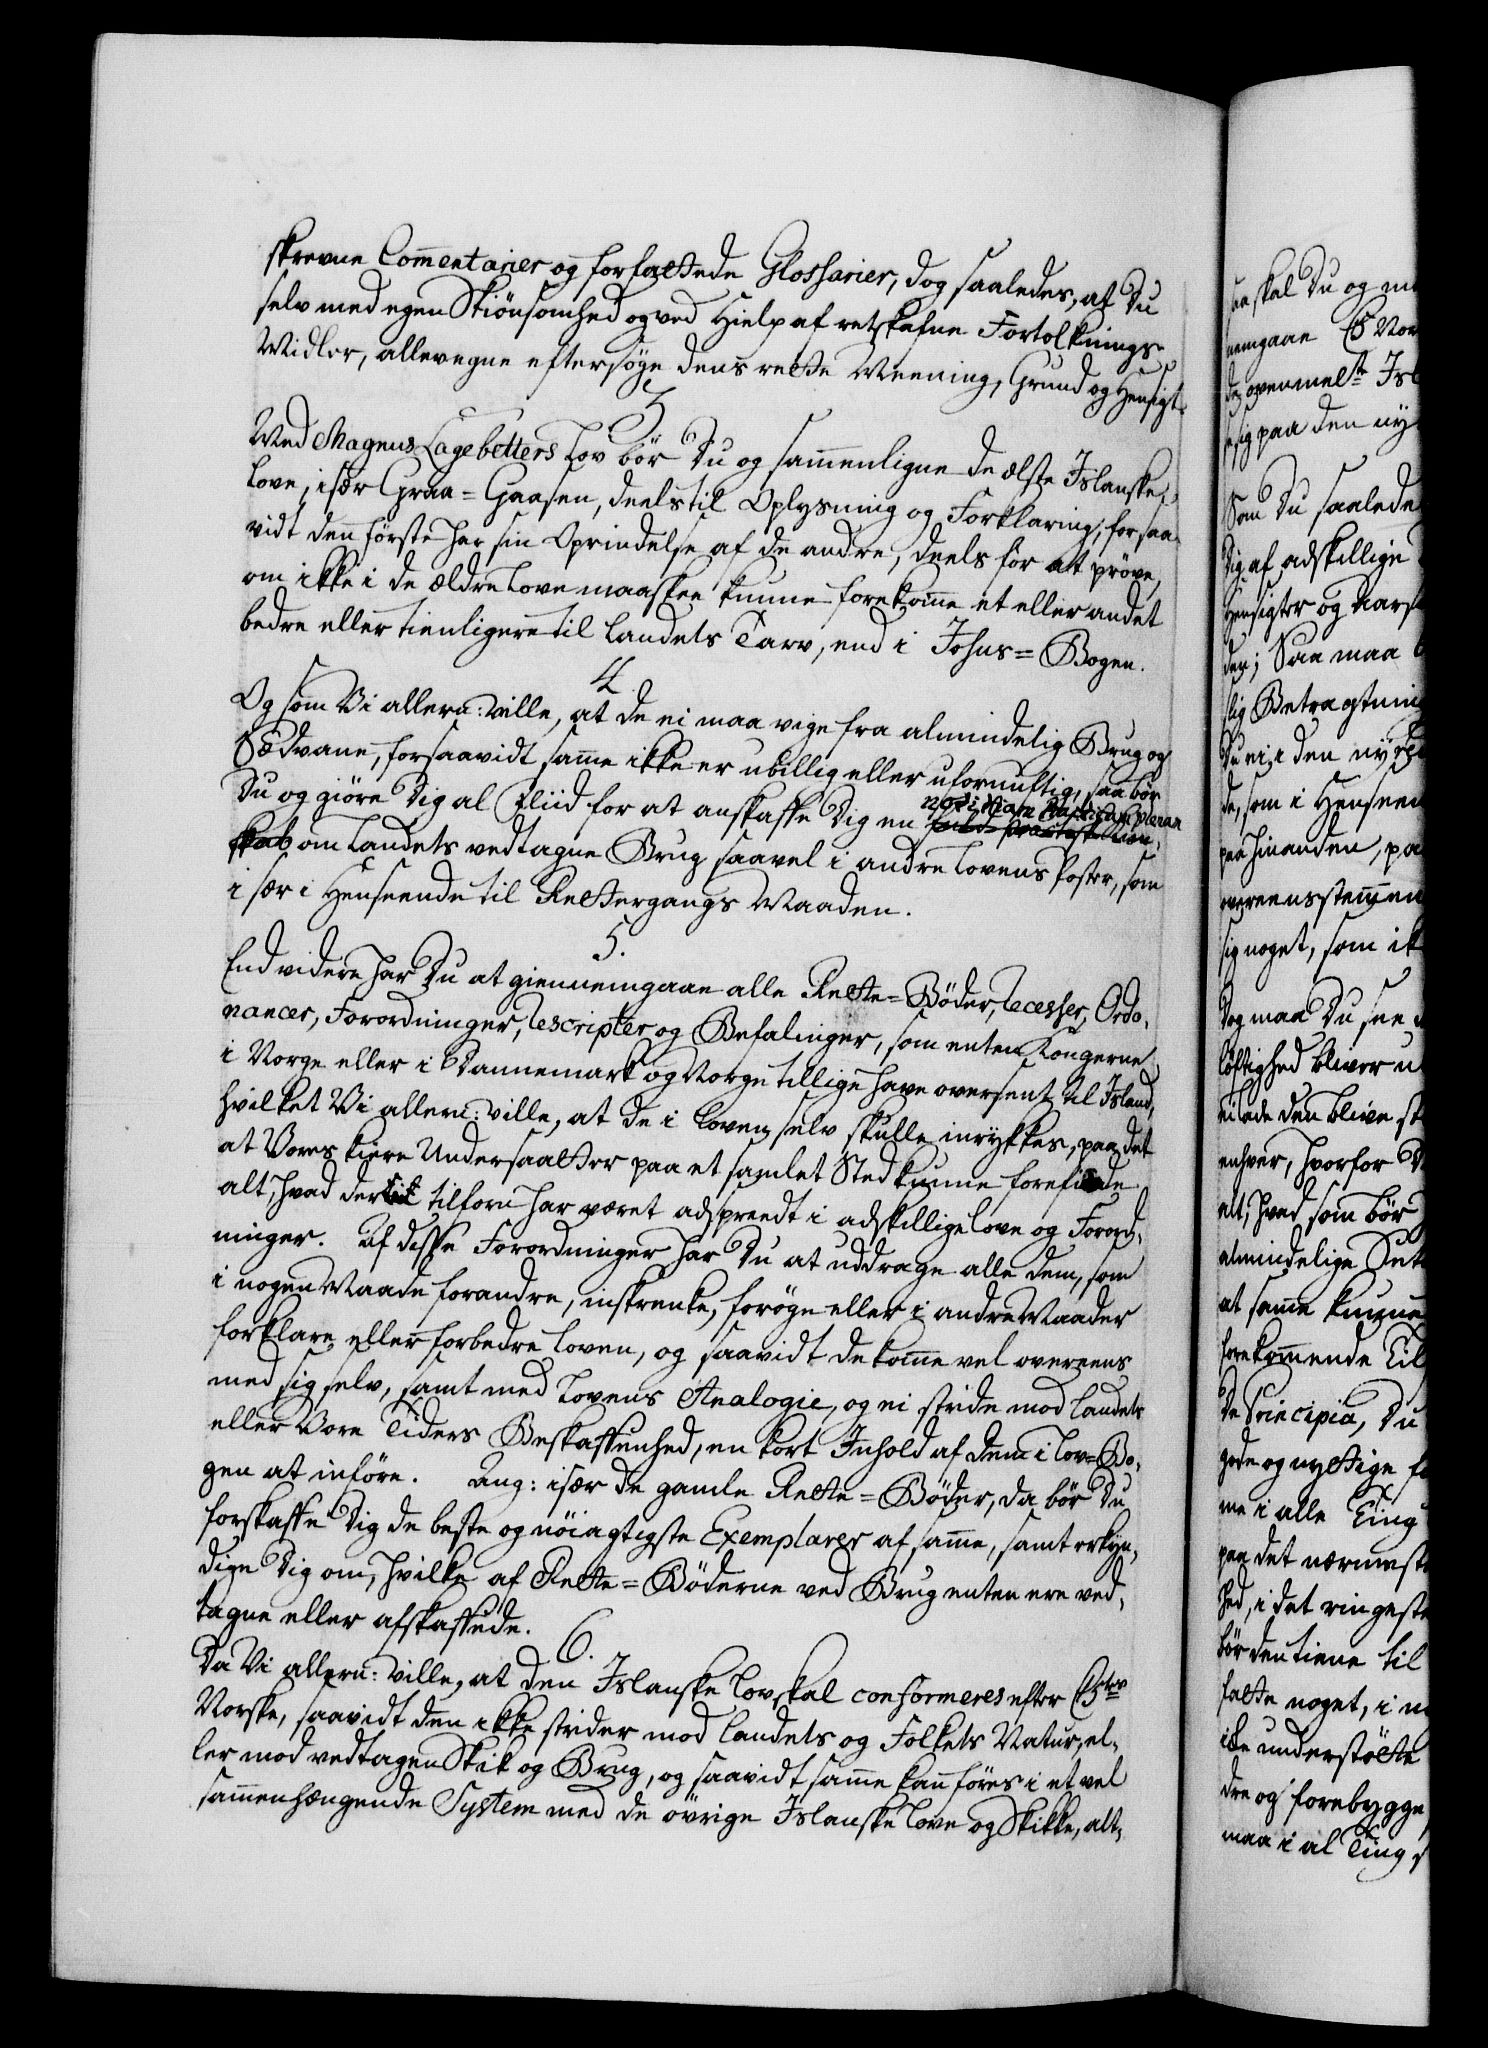 skrevne Com̄entarier og forfattede Glossarier, dog saaledes, at Du
selv med egen Skiönsomhed og ved Hielp af retskafne Fortolknings-
Midler, allevegne eftersöge dens rette Meening, Grund og Hensigt.
3
Med Magnus Lagebetters Lov bör Du og sam̄enligne de ælste Islanske
Love, i sær Graa=Gaasen, deels til Oplysning og Forklaring, forsaa-
vidt den förste har sin Oprindelse af de andre, deels for at pröve,
om ikke i de ældre Love maaskee kunne forekom̄e et eller andet
bedre eller tienligere til Landets Tarv, end i Johns=Bogen.
4.
Og som Vi allern: ville, at de ei maa vige fra almindelig Brug og
Sædvane, forsaavidt sam̄e ikke er ubillig eller ufornuftig, saa bör
Du og giöre Dig al Fliid for at anskaffe Dig en notitiam practicam plenam
skab om Landets vedtagne Brug saavel i andre Lovens Poster, som
i sær i Henseende til Rettergangs Maaden.
5.
End videre har Du at giennemgaae alle Rette=Böder, Recesser, Ordo-
nancer, Forordninger, Rescripter og Befalinger, som enten Kongerne
i Norge eller i Dannemark og Norge tillige have oversent til Island,
hvilket Vi allern: ville, at de i Loven selv skulle inrykkes, paa det
at Vores kiere Undersaatter paa et samlet Sted kunne forefinde
alt, hvad der tilforn har været adspreedt i adskillige Love og Forord-
ninger. Af disse Forordninger har Du at uddrage alle dem, som
i nogen Maade forandre, inskrenke, foröge eller i andre Maader
forklare eller forbedre Loven, og saavidt de kom̄e vel overeens
med sig selv, samt med Lovens Analogie, og ei stride mod Landets
eller Vore Tiders Beskaffenhed, en kort Inhold af dem i Lov=Bo-
gen at införe. Ang: i sær de gamle Rette=Böder, da bör Du
forskaffe Dig de beste og nöiagtigste Exemplarer af sam̄e, samt erkyn-
dige Dig om, hvilke af Rette=Böderne ved Brug enten ere ved-
tagne eller afskaffede.
6.
Da Vi allern: ville, at den Islanske Lov skal conformeres efter C 5tes
Norske, saavidt den ikke strider mod Landets og Folkets Natur, el-
ler mod vedtagen Skik og Brug, og saavidt sam̄e kan föres i et vel
sam̄enhængende System med de övrige Islanske Love og Skikke, alt-
saa skal Du og
nemgaae C 5 Nor
ovenmelte Isl
sig paa den ny
Som Du saalede
Dig af adskillige
Hensigter og
der; Saa maa
lig Betragtning
Du ei i den nye
de, som i Henseen
paa hinanden, pa
overeensstem̄en
sig noget, som ik
Dog maa Du see
löftighed bliver u
den blive
enhver, hvorfor D
alt, hvad som bör
almindelige
at sam̄e kunne
forekom̄ende Til
De Principia, Du
gode og nyttige
me i alle Ting
paa det nærmeste
hed, i det ringeste
bör den tiene til
fatte noget, i
ikke understötte
dre og forebygge
maa i al Ting